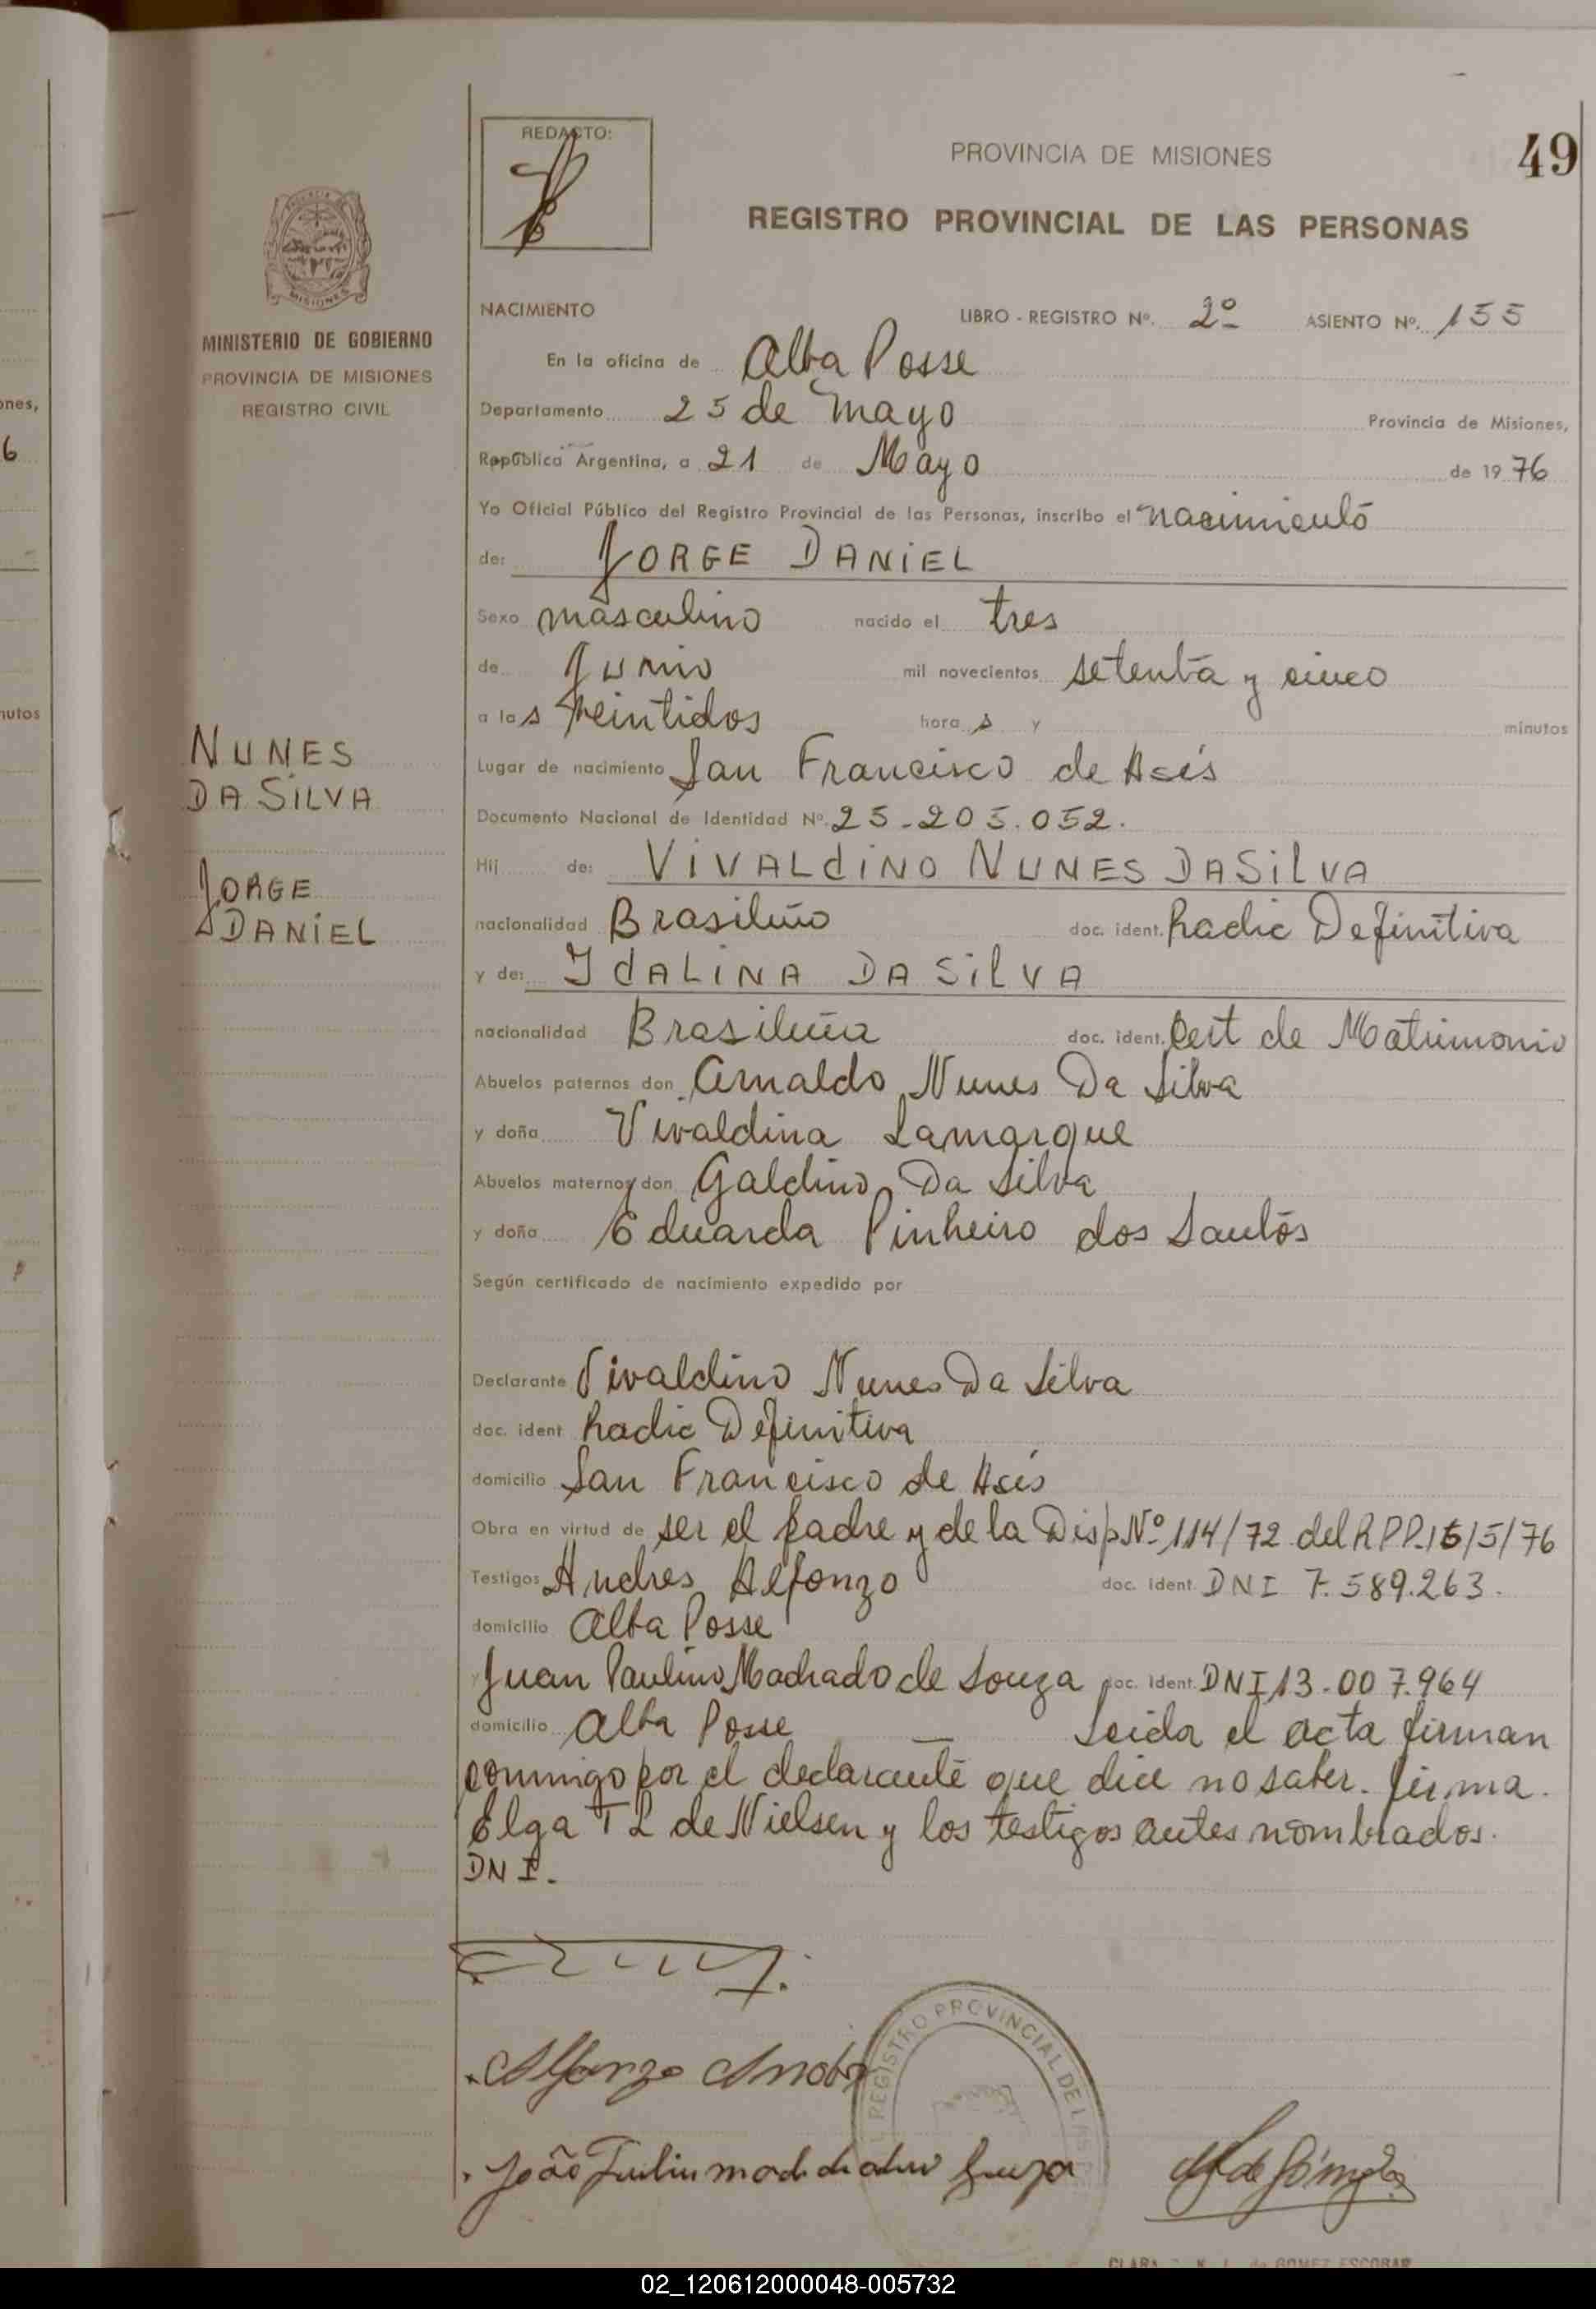 ones,
6
nutos
MINISTERIO DE GOBIERNO
PROVINCIA DE MISIONES
REGISTRO CIVIL
MISIONES
NUNES
DA SILVA
JORGE
DANIEL
REDACTO:
PROVINCIA DE MISIONES
49
REGISTRO PROVINCIAL DE LAS PERSONAS
NACIMIENTO LIBRO - REGISTRO Nº. 2º ASIENTO Nº. 155
En la oficina de Alba Posse
Departamento 25 de Mayo Provincia de Misiones,
República Argentina, a 21 de Mayo de 1976
Yo Oficial Público del Registro Provincial de las Personas, inscribo el nacimiento
de: JORGE DANIEL
Sexo masculino nacido el tres
de Junio mil novecientos setenta y cinco
a las veintidos horas y minutos
Lugar de nacimiento San Francisco de Asís
Documento Nacional de Identidad Nº. 25-205.052.
Hij de: VIVALDINO NUNES DASILVA
nacionalidad Brasileño doc. ident. Radic Definitiva
y de: IDALINA DA SILVA
nacionalidad Brasileña doc. ident. Cert de Matrimonio
Abuelos paternos don Arnaldo Nunes Da Silva
y doña Vivaldina Lamarque
Abuelos maternos don Galdino Da Silva
y doña Eduarda Pinheiro dos Santos
Según certificado de nacimiento expedido por
Declarante Vivaldino Nunes Da Silva
doc. ident Radic Definitiva
domicilio San Francisco de Asís
Obra en virtud de ser el padre y de la Disp Nº 114/72 del RPP. 15/5/76
Testigos Andres Alfonzo doc. ident. DNI 7.589.263.
domicilio Alba Posse
Juan Paulino Machado de Souza doc. ident. DNI 13.007.964
domicilio Alba Posse Leida el acta firman
conmigo por el declarante que dice no saber firma.
Elga T L de Nielsen y los testigos antes nombrados.
DNI.
Alfonzo Andres
João
REGISTRO PROVINCIAL DE LAS
CLARA de GOMEZ ESCOBAR
02_120612000048-005732